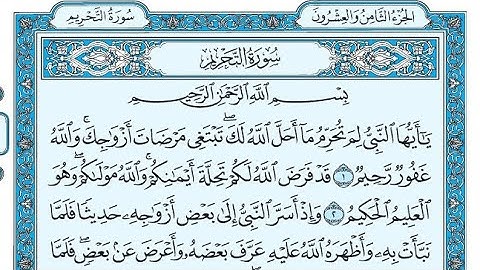 سُورَةُ التَّحْرِيمِ
الجُزْءُ الثَّامِنُ وَالعِشْرُونَ
سُورَةُ التَّحْرِيمِ
بِسْمِ اللَّهِ الرَّحْمَٰنِ الرَّحِيمِ
يَٰٓأَيُّهَا النَّبِيُّ لِمَ تُحَرِّمُ مَآ أَحَلَّ اللَّهُ لَكَ ۖ تَبْتَغِى مَرْضَاتَ أَزْوَٰجِكَ ۚ وَاللَّهُ
غَفُورٌ رَّحِيمٌ ١ قَدْ فَرَضَ اللَّهُ لَكُمْ تَحِلَّةَ أَيْمَٰنِكُمْ ۚ وَاللَّهُ مَوْلَىٰكُمْ ۖ وَهُوَ
الْعَلِيمُ الْحَكِيمُ ٢ وَإِذْ أَسَرَّ النَّبِيُّ إِلَىٰ بَعْضِ أَزْوَٰجِهِۦ حَدِيثًا فَلَمَّا
نَبَّأَتْ بِهِۦ وَأَظْهَرَهُ اللَّهُ عَلَيْهِ عَرَّفَ بَعْضَهُۥ وَأَعْرَضَ عَنۢ بَعْضٍ ۖ فَلَمَّا